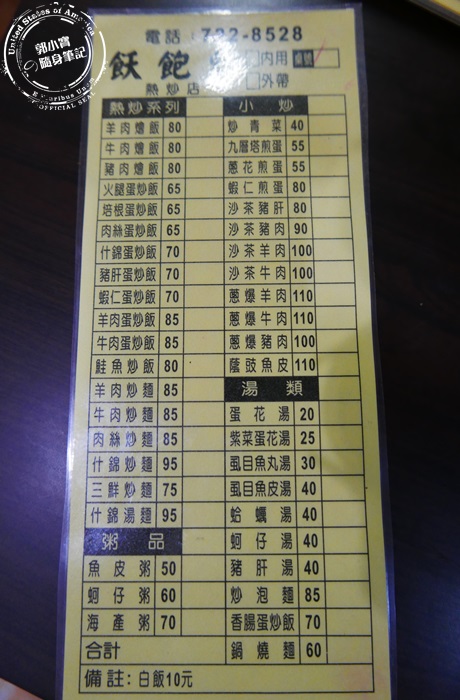 United States of America
郭小寶
隨身筆記
E Pluribus Unum
OFFICIAL SEAL
電話：722-8528
飫飽
熱炒店
內用
外帶
熱炒系列
羊肉燴飯 80
牛肉燴飯 80
豬肉燴飯 80
火腿蛋炒飯 65
培根蛋炒飯 65
肉絲蛋炒飯 65
什錦蛋炒飯 70
豬肝蛋炒飯 70
蝦仁蛋炒飯 70
羊肉蛋炒飯 85
牛肉蛋炒飯 85
鮭魚炒飯 80
羊肉炒麵 85
牛肉炒麵 85
肉絲炒麵 85
什錦炒麵 95
三鮮炒麵 75
什錦湯麵 95
粥品
魚皮粥 50
蚵仔粥 60
海產粥 70
合計
小炒
炒青菜 40
九層塔煎蛋 55
蔥花煎蛋 55
蝦仁煎蛋 80
沙茶豬肝 80
沙茶豬肉 90
沙茶羊肉 100
沙茶牛肉 100
蔥爆羊肉 110
蔥爆牛肉 110
蔥爆豬肉 100
蔭豉魚皮 110
湯類
蛋花湯 20
紫菜蛋花湯 25
虱目魚丸湯 30
虱目魚皮湯 40
蛤蠣湯 40
蚵仔湯 40
豬肝湯 40
炒泡麵 85
香腸蛋炒飯 70
鍋燒麵 60
備註：白飯10元